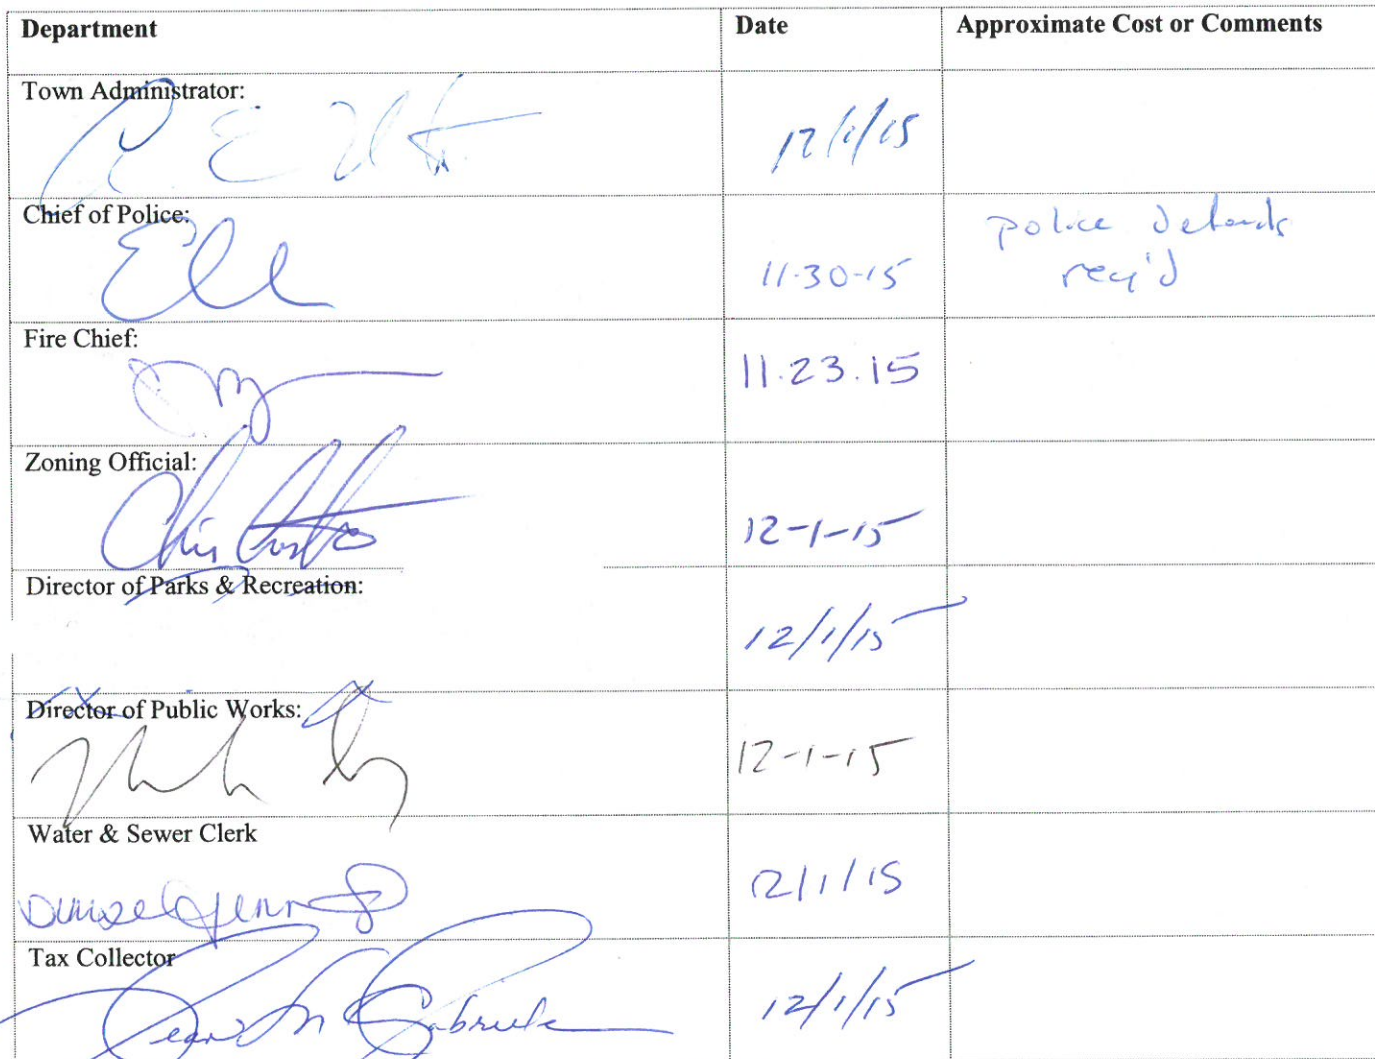 Department Date Approximate Cost or Comments
Town Administrator:
12/1/15
Chief of Police:
police
11-30-15 req'd
Fire Chief:
11.23.15
Zoning Official:
Chris
12-1-15
Director of Parks & Recreation:
12/1/15
Director of Public Works:
12-1-15
Water & Sewer Clerk
12/1/15
Tax Collector
12/1/15